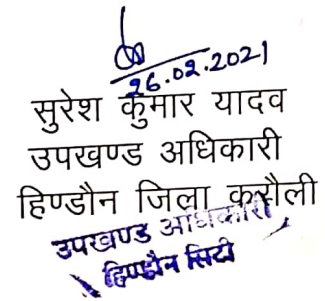 26.02.2021
सुरेश कुमार यादव
उपखण्ड अधिकारी
हिण्डौन जिला करौली
उपखण्ड अधिकारी
हिण्डौन सिटी